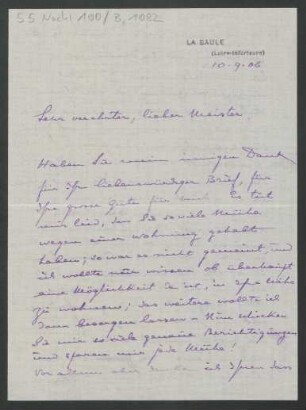 55 Nachl 100/B, 1082
LA BAULE
(Loire-Inférieure)
10-9-06
Sehr verehrter, lieber Meister
Haben Sie meinen innigen Dank
für Ihr liebenswürdigen Brief, für
Ihre grosse Güte für mich. Es tut
mir leid, dass Sie so viele Mühe
wegen einer Wohnung gehabt
haben; so war es nicht gemeint, und
ich wollte nur wissen ob überhaupt
eine Möglichkeit da ist, in Ihre Nähe
zu wohnen; das weitere wollte ich
dann besorgen lassen - Nun schicken
Sie mir so viele genaue Berichtigungen
und sparen mir jede Mühe!
Vor allem aber danke ich Ihnen dass